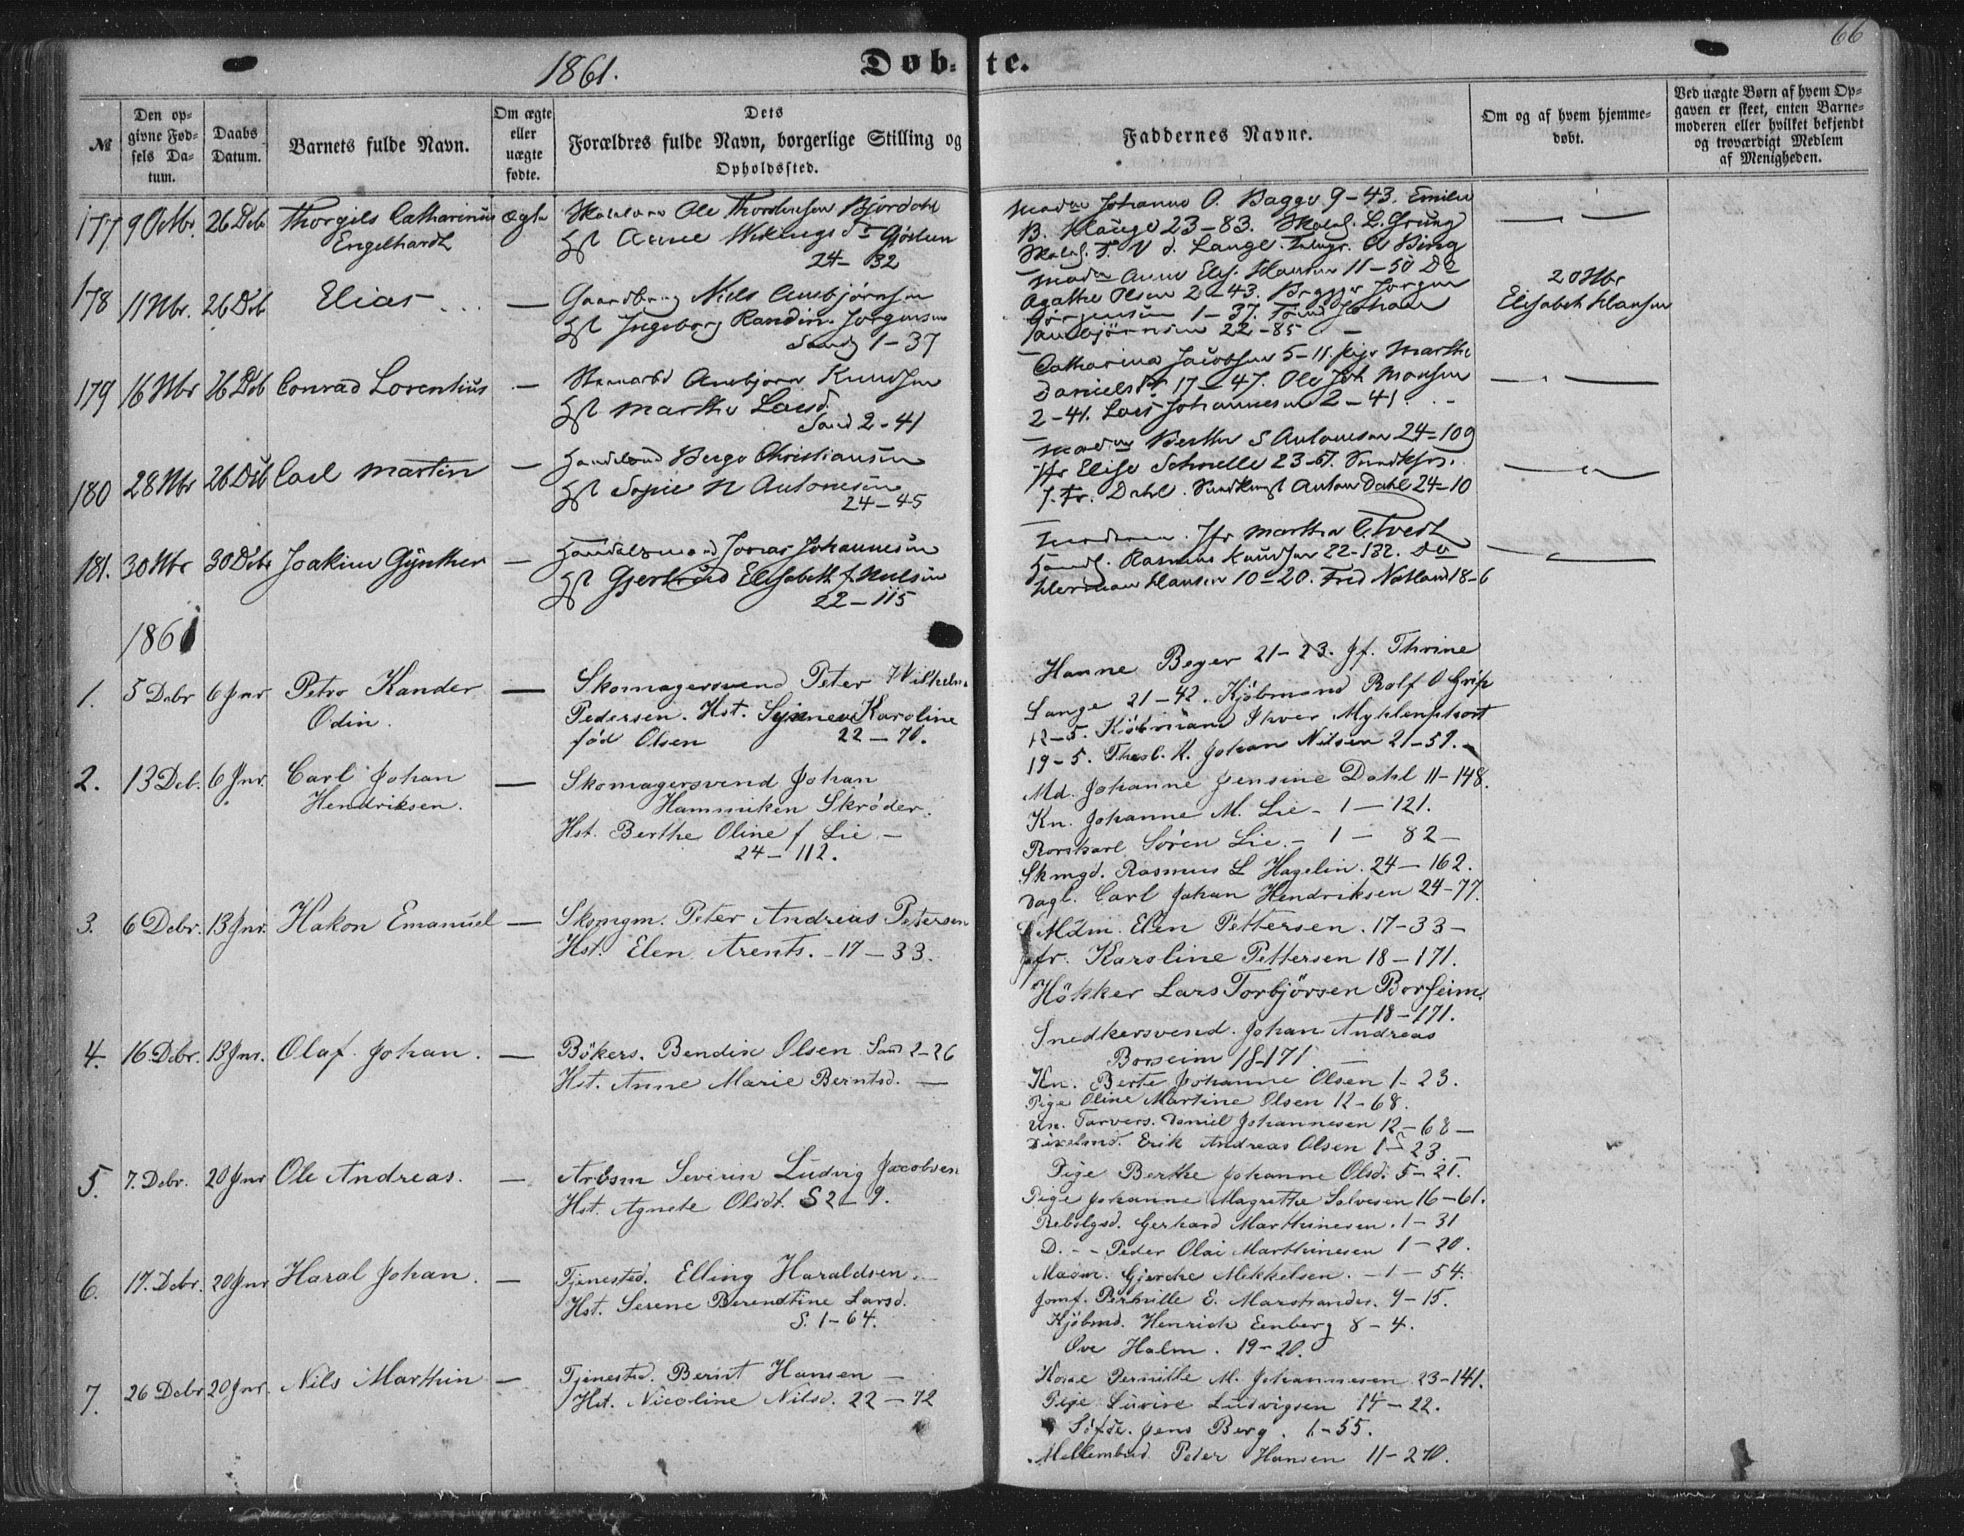 66
1861.
Døb-te.
№
Den op-
givne Fød-
sels Da-
tum.
Daabs
Datum.
Barnets fulde Navn.
Om ægte
eller
uægte
fødte.
Dets
Forældres fulde Navn, borgerlige Stilling og
Opholdssted.
Faddernes Navne.
Om og af hvem hjemme-
døbt.
Ved uægte Børn af hvem Op-
gaven er skeet, enten Barne-
moderen eller hvilket bekjendt
og troværdigt Medlem
af Menigheden.
177 9 Octbr. 26 Deb Thorgils Catharinus ægte Ole Thordensen Bjordahl
Engelhardt Hst Anne
24-32
Johanne O. Bagge 9-43. Emilie
B. Hauge 23-83. L. Grung
Lange.
178 11 Nbr. 26 Deb Elias — Niels Ansbjørnsen
Hst Ingeborg Randine Jørgensen
Sand 1-37
Anne Elis. Hansen 11-50 Do
Agathe Olsen 2-43. Jørgen
Jørgensen 1-37. Johan
Ansbjørnsen 22-85 —
20 Nbr
Elisabeth Hansen
179 16 Nbr 26 Deb Conrad Lorentius — Ansbjørn Knudsen
Hst Marthe Larsd.
Sand 2-41
Catharina Jacobsen 5-11. Pige Marthe
Danielsdr 17-47. Ole Joh Monsen
2-41. Lars Johannesen 2-41.
180 28 Nbr 26 Deb Carl Martin — Handelsmd Berge Christiansen
Hst Sofie N Antonesen
24-45
Berthe S Antonesen 24-109
Jfr Elise Schnelle 23-67.
J. Fr. Dahl. Anton Dahl 24-10
181. 30 Nbr 30 Debr Joakim Gynther — Handelsmand Jonas Johannesen
Hst Gjertrud Elisabeth f. Nielsen
22-115
Moderen. Jfr Martha C. Tvedt
Handl. Rasmus Knudsen 22-132. Do
Herman Hansen 10-20. Fred Natland 18-6
1861
1. 5 Debr 6 Jnr Petro Kander — Skomagersvend Peter Wilhelm
Odin. Pedersen. Hst. Synneve Karoline
fød Olsen 22-70.
Hanne Beyer 21-23. Jf. Thrine
Lange 21-42. Kjöbmand Rolf O Grip
12-5. Kjöbmand Myhlenphort
19-5. Theol. K. Johan Nilsen 21-51.
2. 13 Deb. 6 Jnr. Carl Johan — Skomagersvend Johan
Hendriksen. Hammiken Skröder.
Hst. Berthe Oline f Lie —
24-112.
Md. Johanne Jensine Dahl 11-148.
Kn. Johanne M. Lie - 1-121.
Rorskarl Sören Lie - 1-82 —
Skmgd. Rasmus L Hagelin. 24-162.
Dagl. Carl Johan Hendriksen 24-77.
3. 6 Debr. 13 Jnr. Hakon Emanuel — Skomgm. Peter Andreas Petersen
Hst. Elen Arents. - 17-33.
Mdm. Elen Pettersen. 17-33 —
Jfr. Karoline Pettersen 18-171.
Hökker Lars Torbjörsen Borseim.
18-171.
Snedkersvend. Johan Andreas
Borseim 18-171. —
4. 16 Debr. 13 Jnr. Olaf Johan. — Bökers. Bendix Olsen Sand 2-26
Hst. Anne Marie Berntsd. —
Kn. Berte Johanne Olsen 1-23.
Pige Oline Martine Olsen 12-68.
Un. Farvers. Daniel Johannesen 12-68 —
Erik Andreas Olsen 1-23.
5. 7. Debr. 20 Jnr Ole Andreas. — Arbsm Severin Ludvig Jacobsen
Hst. Agnete Olsdt. S 2-9.
Pige Berthe Johanne Olsd. 5-21.
Pige Johanne Magrethe Salvesen 16-61.
Rebslgsd. Gerhard Marthinesen. 1-31
D. - - Peder Olai Marthinesen 1-20.
6. 17. Debr. 20 Jnr Haral Johan. — Tjenested. Elling Haraldsen.
Hst. Serene Berendtine Larsd.
S. 1-64.
Madm. Gjerche Mikkelsen. - 1-54.
Jomf. Pernille E. Marstrander. 9-15.
Kjöbmd. Henrich Eenberg 8-4.
Ove Halm. 19-20.
7. 26 Debr 20 Jnr. Nils Marthin — Tjenested. Bernt Hansen —
Hst. Nicoline Nilsd. 22-72
Kone Pernille M. Johannesen 23-141.
Pige Sivine Ludvigsen 14-22.
Jens Berg. 1-55.
Peter Hansen 11-270.